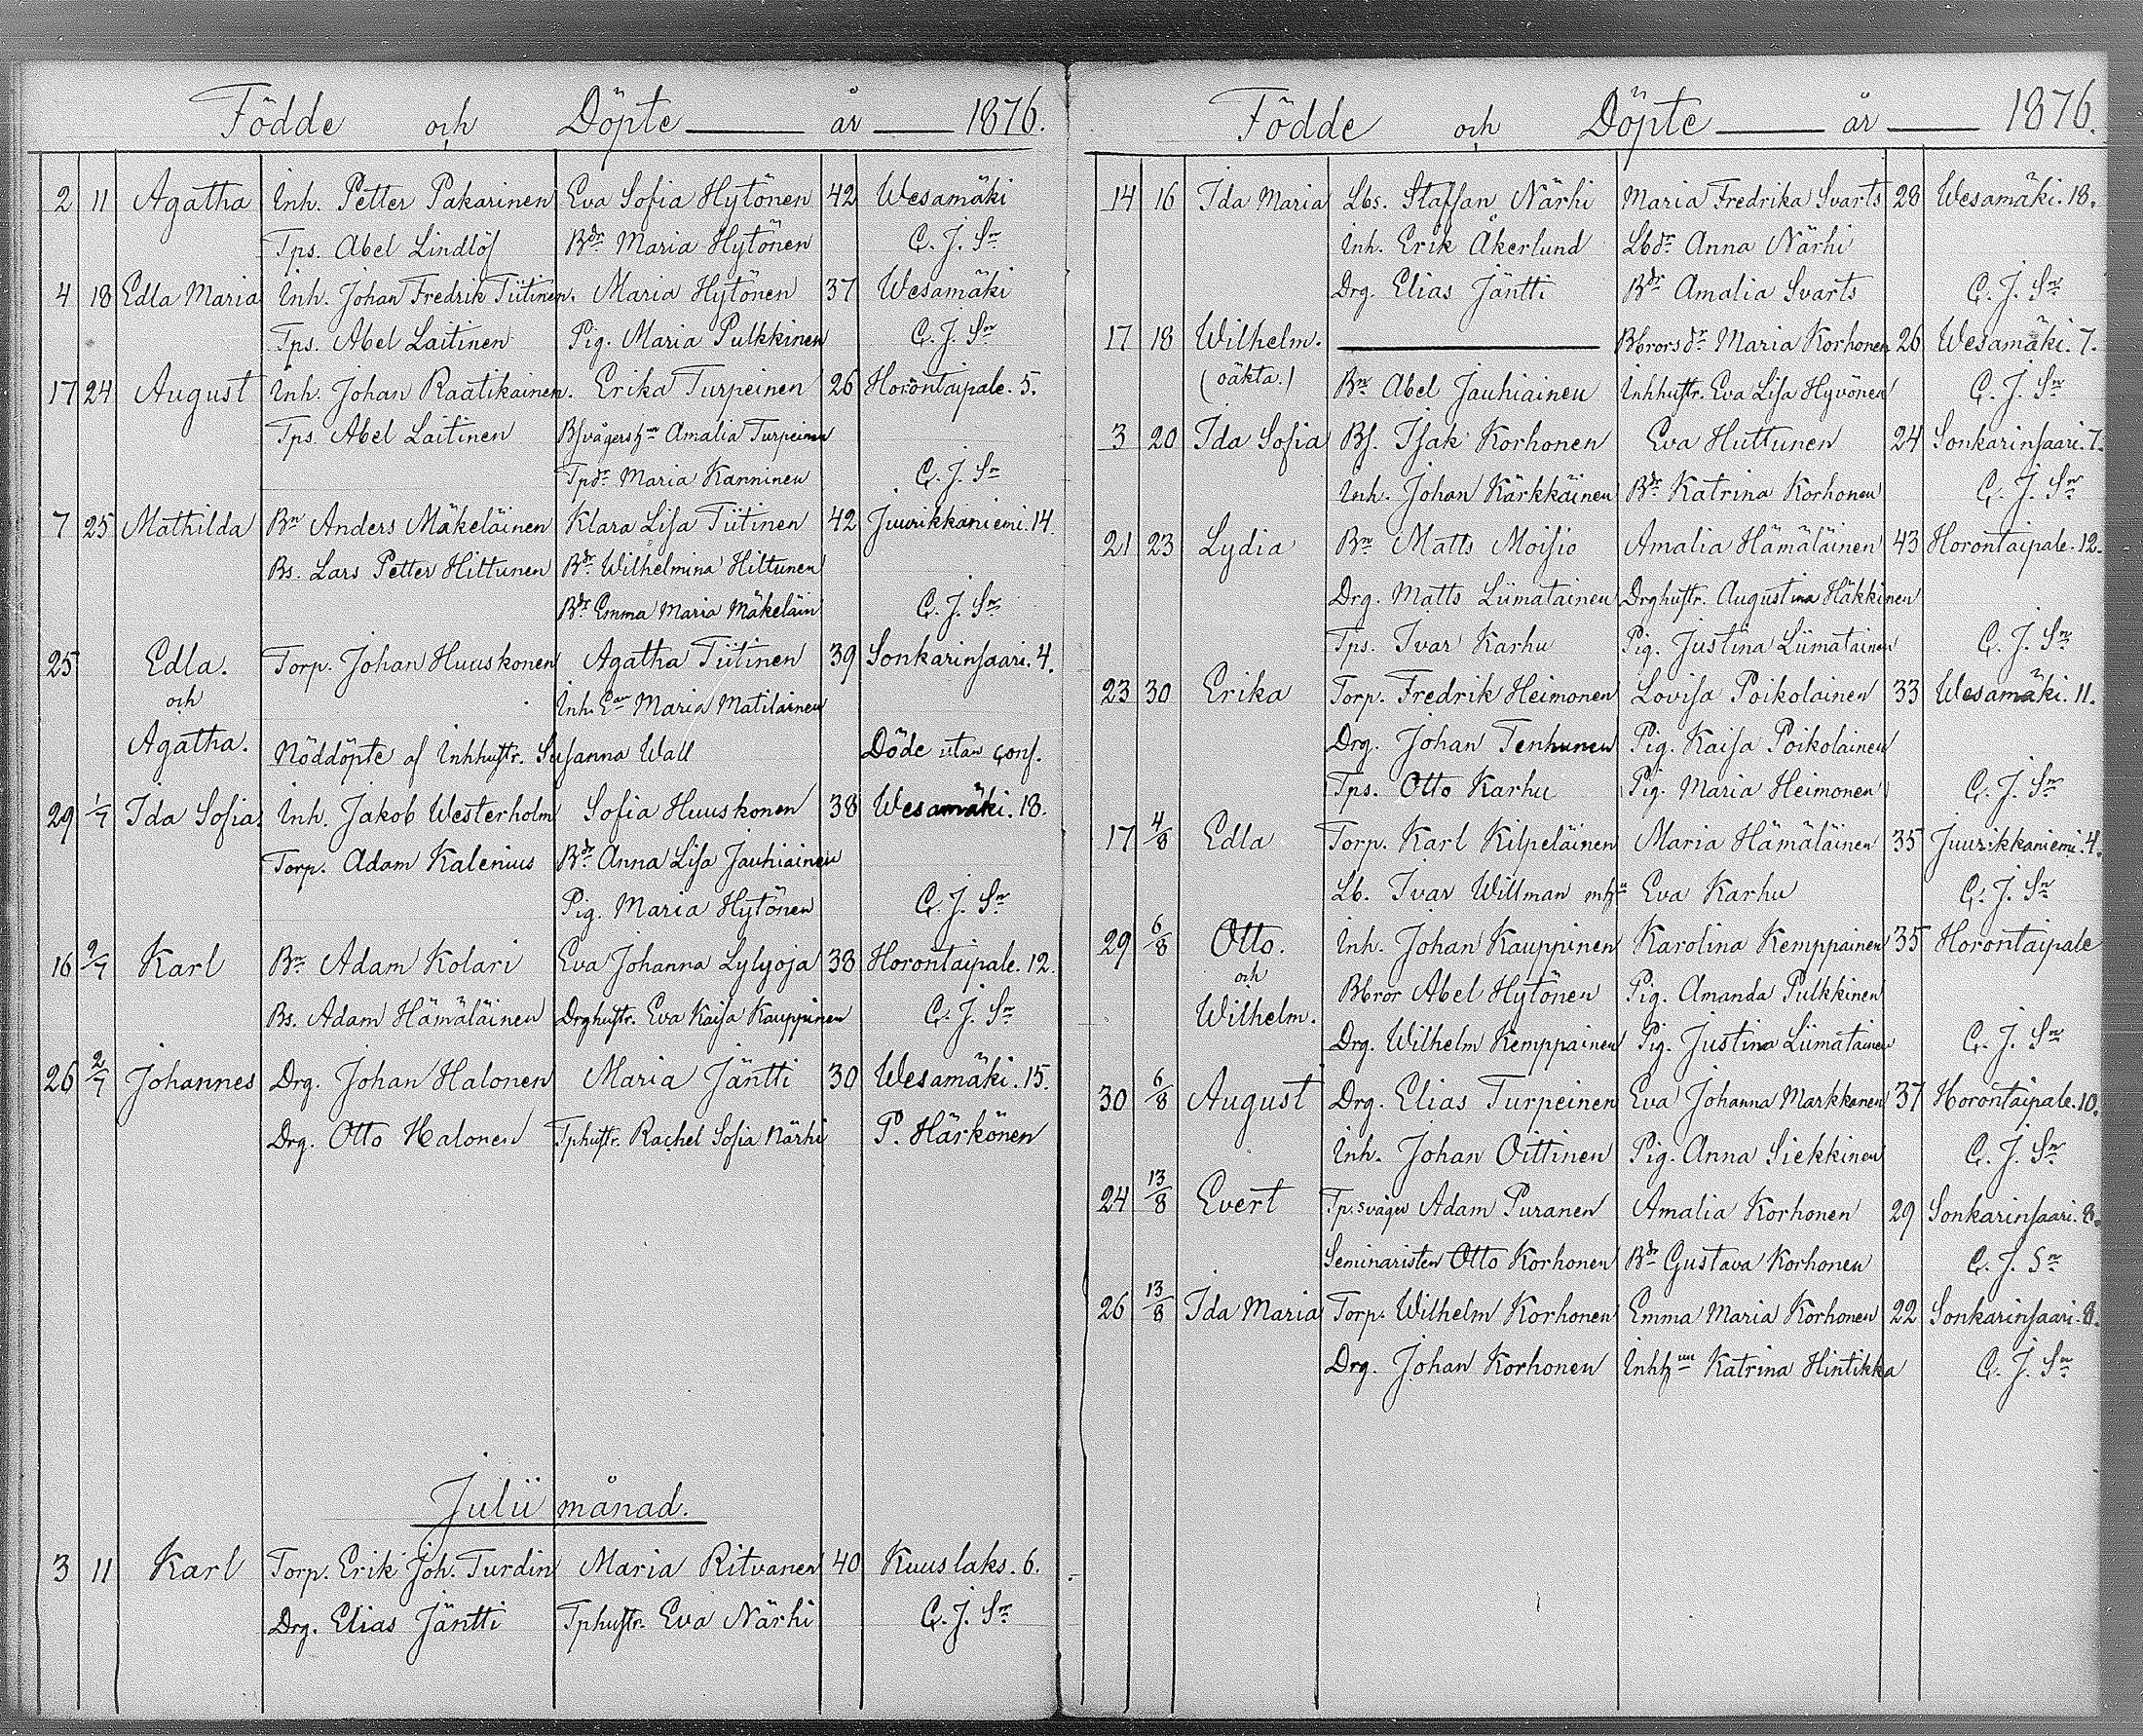 Födde och Döpte år 1876.
2 11 Agatha Inh. Petter Pakarinen Eva Sofia Hytönen 42 Wesamäki
Tps. Abel Lindlöf Bdr Maria Hytönen C. J. Sn
4 18 Edla Maria Inh. Johan Fredrik Tiitinen. Maria Hytönen 37 Wesamäki
Tps. Abel Laitinen Pig. Maria Pulkkinen C. J. Sn
17 24 August Inh. Johan Raatikainen. Erika Turpeinen 26 Horontaipale. 5.
Tps. Abel Laitinen Bsvågershn Amalia Turpeinen
Tpdr Maria Kanninen C. J. Sn
7 25 Mathilda Bn Anders Mäkeläinen Klara Lisa Tiitinen 42 Juurikkaniemi. 14.
Bs. Lars Petter Hiltunen Bdr Wilhelmina Hiltunen
Bdr Emma Maria Mäkeläin C. J. Sn
25 Edla. Torp. Johan Huuskonen Agatha Tiitinen 39 Sonkarinsaari. 4.
och Inh. Ean Maria Matilainen
Agatha. Nöddöpte af Inhhustr. Susanna Wall Döde utan conf.
29 1/7 Ida Sofia. Inh. Jakob Westerholm Sofia Huuskonen 38 Wesamäki. 18.
Torp. Adam Kalenius Bdr Anna Lisa Jauhiainen
Pig. Maria Hytönen C. J. Sn
16 9/7 Karl Bn Adam Kolari Eva Johanna Lylyoja 38 Horontaipale. 12.
Bs. Adam Hämäläinen Drghustr. Eva Kaisa Kauppinen C. J. Sn
26 2/7 Johannes Drg. Johan Halonen Maria Jäntti 30 Wesamäki. 15.
Drg. Otto Halonen Tphustr. Rachel Sofia Närhi P. Härkönen
Julii månad.
3 11 Karl Torp. Erik Joh. Turdin Maria Ritvanen 40 Kuuslaks. 6.
Drg. Elias Jäntti Tphustr. Eva Närhi C. J. Sn
Födde och Döpte år 1876.
14 16 Ida Maria Lbs. Staffan Närhi Maria Fredrika Svarts 28 Wesamäki. 18.
Inh. Erik Åkerlund Lbdr Anna Närhi
Drg. Elias Jäntti Bdr Amalia Svarts C. J. Sn
17 18 Wilhelm. Bbrorsdr Maria Korhonen 26 Wesamäki. 7.
(oäkta.) Bn Abel Jauhiainen Inhhustr. Eva Lisa Hyvönen C. J. Sn
3 20 Ida Sofia Bs. Isak Korhonen Eva Huttunen 24 Sonkarinsaari. 7.
Inh. Johan Kärkkäinen Bdr Katrina Korhonen C. J. Sn
21 23 Lydia Bn Matts Moisio Amalia Hämäläinen 43 Horontaipale. 12.
Drg. Matts Liimatainen Drghustr. Augustina Häkkinen
Tps. Ivar Karhu Pig. Justina Liimatainen C. J. Sn
23 30 Erika Torp. Fredrik Heimonen Lovisa Poikolainen 33 Wesamäki. 11.
Drg. Johan Tenhunen Pig. Kaisa Poikolainen
Tps. Otto Karhu Pig. Maria Heimonen C. J. Sn
17 4/8 Edla Torp. Karl Kilpeläinen Maria Hämäläinen 35 Juurikkaniemi. 4.
Lb. Ivar Willman mhu Eva Karhu C. J. Sn
29 6/8 Otto. Inh. Johan Kauppinen Karolina Kemppainen 35 Horontaipale
och Bbror Abel Hytönen Pig. Amanda Pulkkinen
Wilhelm. Drg. Wilhelm Kemppainen Pig. Justina Liimatainen C. J. Sn
30 6/8 August Drg. Elias Turpeinen Eva Johanna Markkanen 37 Horontaipale. 10.
Inh. Johan Oittinen Pig. Anna Siekkinen C. J. Sn
24 13/8 Evert Tp.svåger Adam Puranen Amalia Korhonen 29 Sonkarinsaari. 8.
Seminaristen Otto Korhonen Bdr Gustava Korhonen C. J. Sn
26 13/8 Ida Maria Torp. Wilhelm Korhonen Emma Maria Korhonen 22 Sonkarinsaari. 8.
Drg. Johan Korhonen Inhhun Katrina Hintikka C. J. Sn